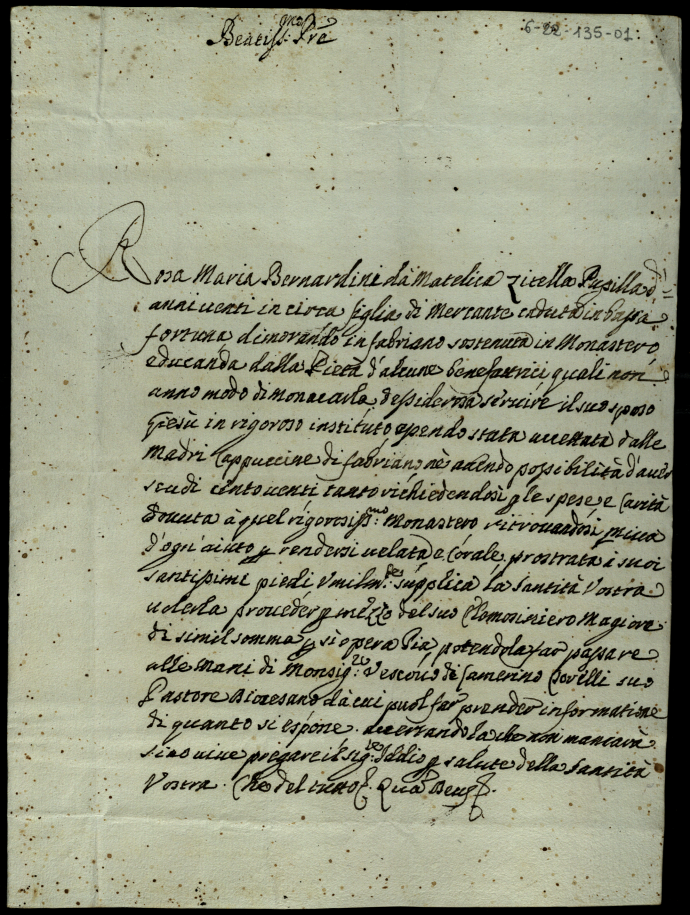 6-22-135-01:
Beatiss:mo Pre
Rosa Maria Bernardini dà Matelica Zitella Pupilla d'
anni uenti in circa figlia di Mercante caduta in bassa
fortuna dimorando in fabriano sostenuta in Monastero
educanda dalla Pietà d'alcune benefattrici quali non
anno modo di monacarla, dessiderosa seruire il suo sposo
Giesù in rigoroso instituto essendo stata accettata dalle
Madri Cappuccine di fabriano nè auendo possibilità d'auer
scudi cento uenti tanto richiedendosi p le spese, e Carità
Douuta à quel rigorosiss:mo Monastero ritrouandosi priua
d'ogn'aiuto p rendersi uelata e Corale, prostrata i suoi
santissimi piedi Vmilm:te supplica la Santità Vostra
uolerla proueder p mezzo del suo Elemosiniero Magiore
di simil somma p sì opera Pia, potendola far passare
alle Mani di Monsig:re Vescouo di Camerino suo
Pastore Diocesano dà cui puol far prender informatione
di quanto si espone. accerrandola che non mancarà
sino uiue pregare il Sig:re Iddio p salute della Santità
Vostra. Che del tutto &. Quā Deus &.